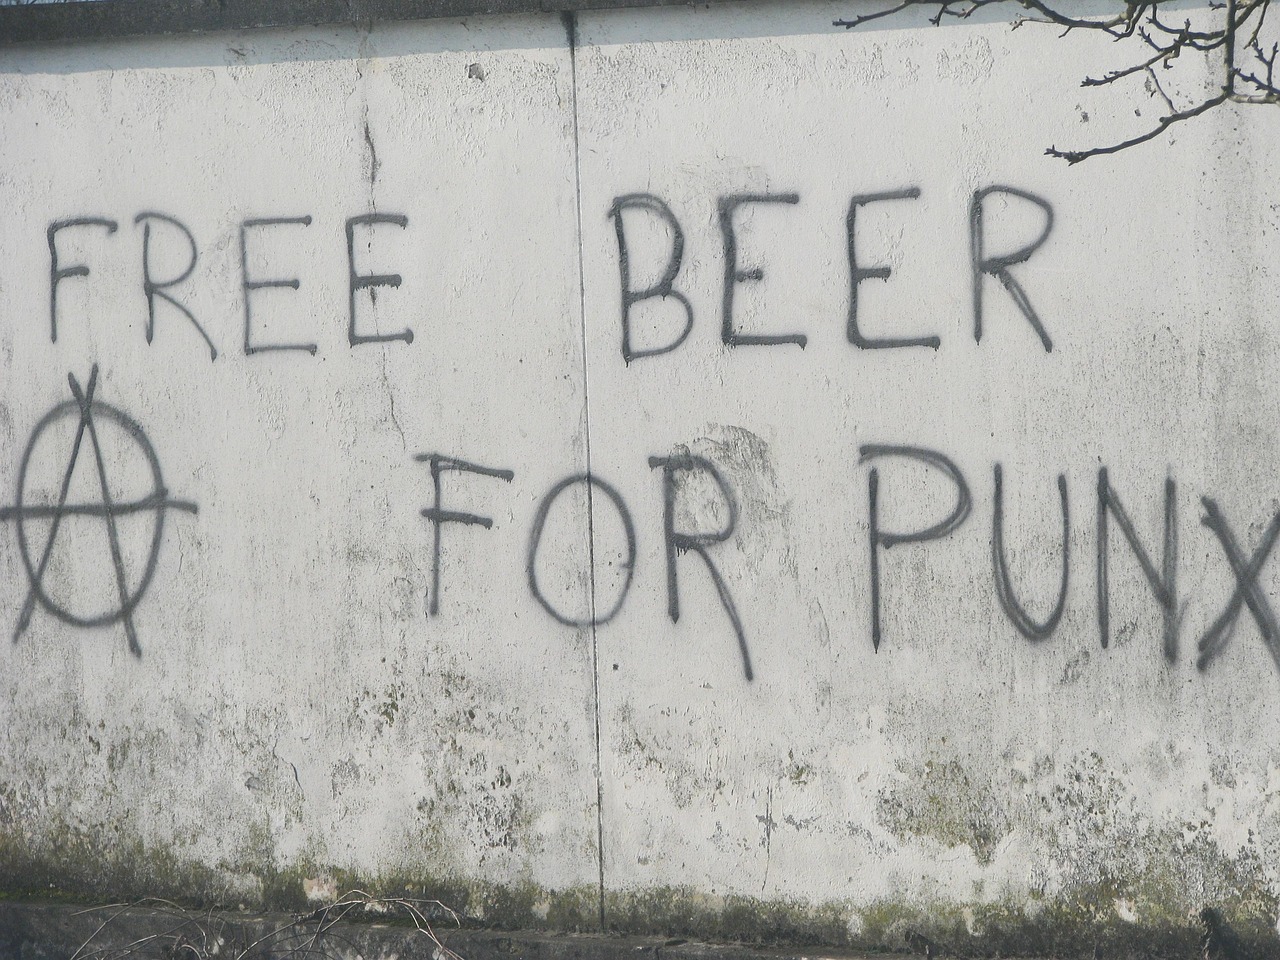 FREE BEER
Ⓐ FOR PUNX